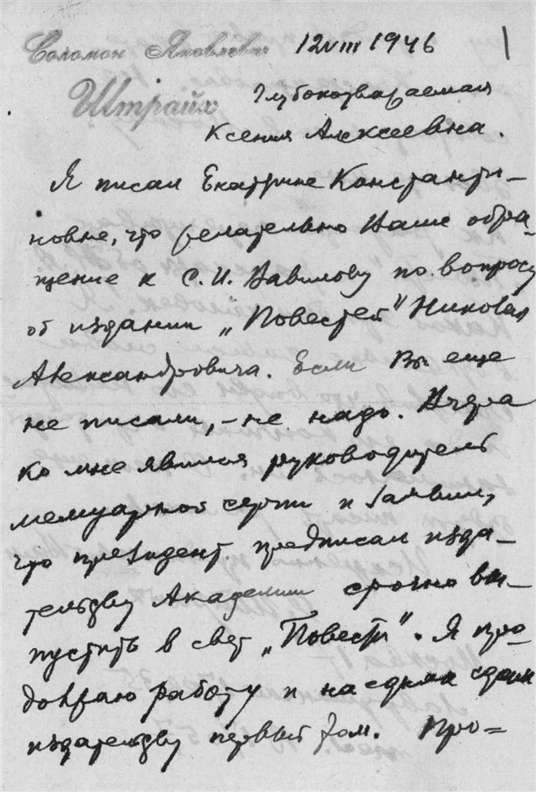 Соломон Яковлевич 12 VIII 1946
Штрайх
Глубокоуважаемая
Ксения Алексеевна.
Я писал Екатерине Константи-
новне, что желательно Ваше обра-
щение к С. И. Вавилову по вопросу
об издании „Повестей" Николая
Александровича. Если Вы еще
не писали, – не надо. Вчера
ко мне явился руководитель
мемуарной серии и заявил,
что президент предписал изда-
тельству Академии срочно вы-
пустить в свет „Повести". Я про-
должаю работу и на днях сдам
издательству первый том. Про=